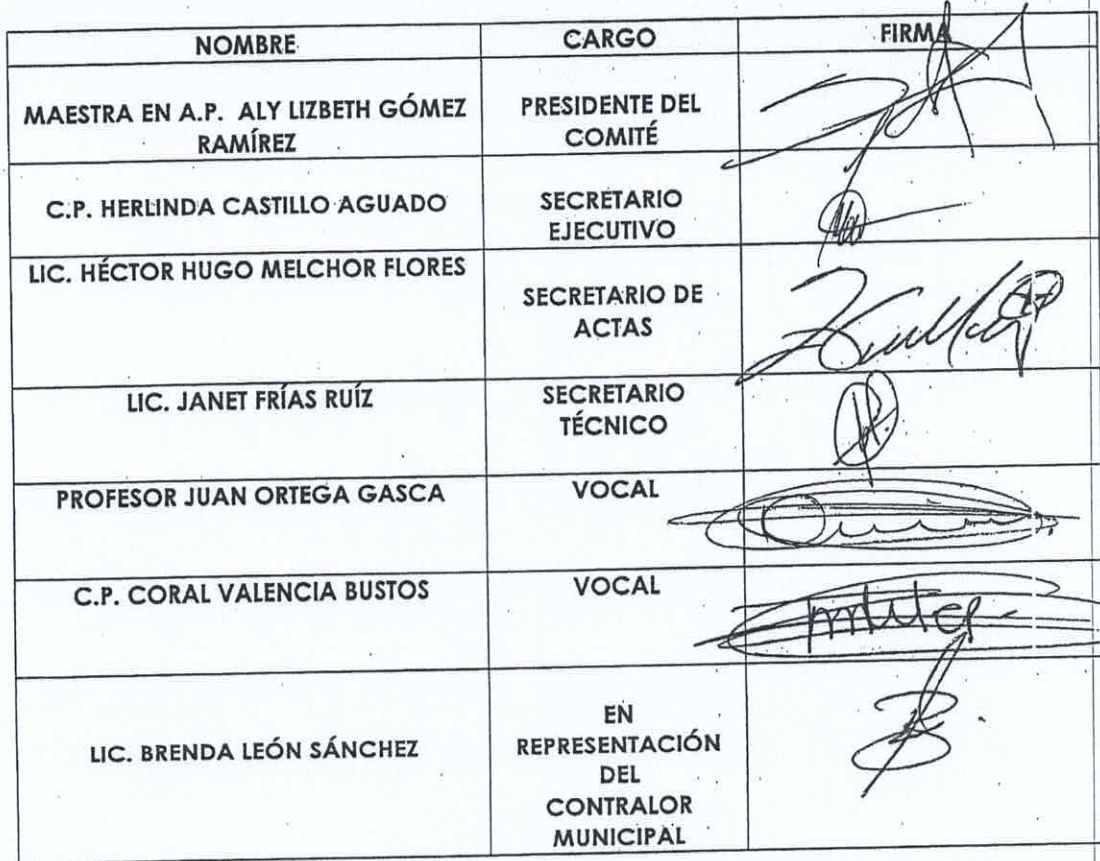 NOMBRE CARGO FIRMA
MAESTRA EN A.P. ALY LIZBETH GÓMEZ
RAMÍREZ
PRESIDENTE DEL
COMITÉ
C.P. HERLINDA CASTILLO AGUADO
SECRETARIO
EJECUTIVO
LIC. HÉCTOR HUGO MELCHOR FLORES
SECRETARIO DE
ACTAS
LIC. JANET FRÍAS RUÍZ
SECRETARIO
TÉCNICO
PROFESOR JUAN ORTEGA GASCA
VOCAL
C.P. CORAL VALENCIA BUSTOS
VOCAL
LIC. BRENDA LEÓN SÁNCHEZ
EN
REPRESENTACIÓN
DEL
CONTRALOR
MUNICIPAL